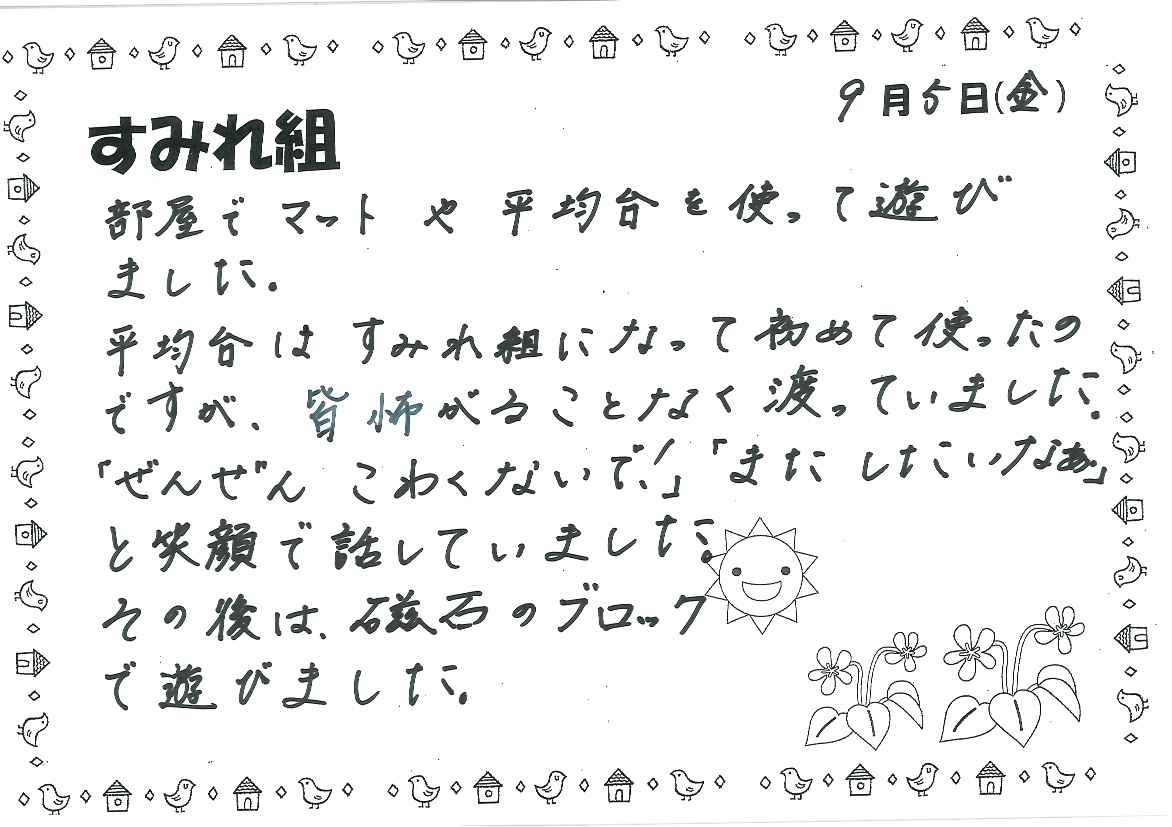 9月5日(金)
すみれ組
部屋でマットや平均台を使って遊び
ました。
平均台はすみれ組になって初めて使ったの
ですが、皆怖がることなく渡っていました。
「ぜんぜんこわくないで!」「またしたいなぁ」
と笑顔で話していました。
その後は、磁石のブロック
で遊びました。